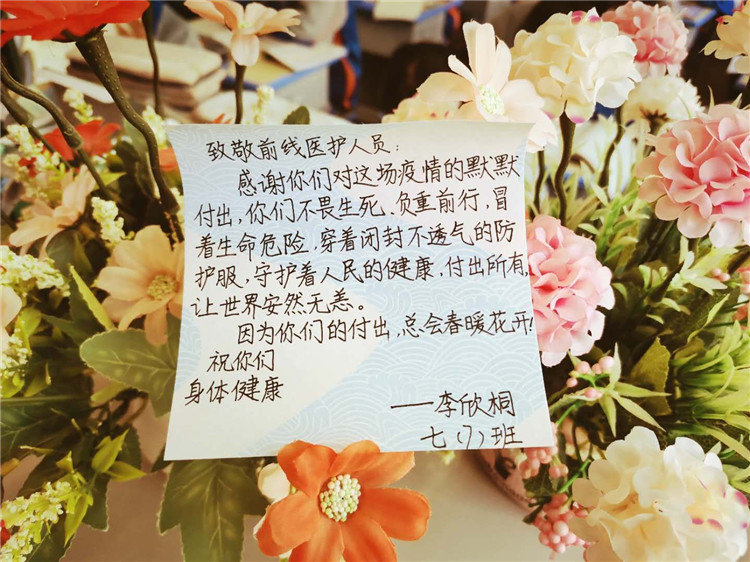 致敬前线医护人员：
感谢你们对这场疫情的默默
付出，你们不畏生死、负重前行，冒
着生命危险，穿着闭封不透气的防
护服，守护着人民的健康，付出所有，
让世界安然无恙。
因为你们的付出，总会春暖花开！
祝你们
身体健康
——李欣桐
七（7）班